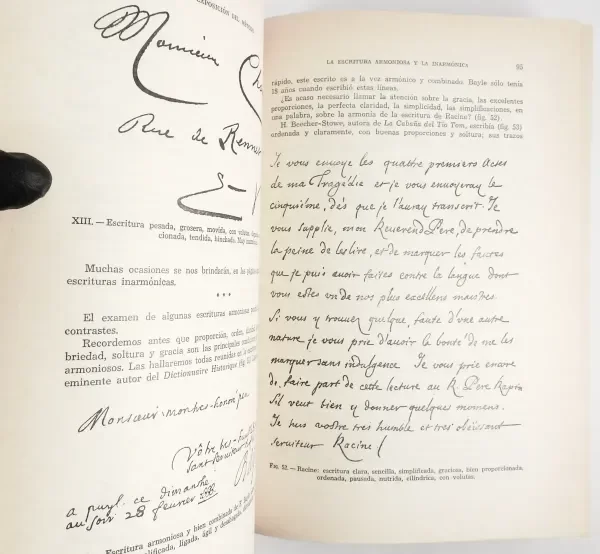 EXPOSICIÓN DEL MÉTODO
Monsieur
Rue de Rennes
XIII. — Escritura pesada, grosera, movida, con volutas,
cionada, tendida, hinchada. Muy
Muchas ocasiones se nos brindarán, en las
escrituras inarmónicas.
* * *
El examen de algunas escrituras armoniosas
contrastes.
Recordemos antes que proporción, orden, claridad,
briedad, soltura y gracia son las principales
armoniosos. Las hallaremos todas reunidas en la
eminente autor del Dictionnaire Historique (fig.
Monsieur mon tres-honoré pere
Vôtre tres-humble
sant serviteur
a puyl. ce dimanche
au soir 28 fevrier
Escritura armoniosa y bien combinada de
simplificada, ligada, ágil y desahogada,
LA ESCRITURA ARMONIOSA Y LA INARMÓNICA 95
rápido, este escrito es a la voz armónico y combinado. Bayle sólo tenía
18 años cuando escribió estas líneas.
¿Es acaso necesario llamar la atención sobre la gracia, las excelentes
proporciones, la perfecta claridad, la simplicidad, las simplificaciones, en
una palabra, sobre la armonía de la escritura de Racine? (fig. 52).
H. Beecher-Stowe, autora de La Cabaña del Tío Tom, escribía (fig. 53)
ordenada y claramente, con buenas proporciones y soltura; sus trazos
Je vous envoye les quattre premiers Actes
de ma Tragédie et je vous envoyeray le
cinquiéme, dés que je l'auray transcrit. Je
vous supplie, mon Reverend Pere, de prendre
la peine de les lire, et de marquer les fautes
que je puis avoir faites contre la langue dont
vous estes un de nos plus excellens maistres.
Si vous y trouvez quelque, faute d'une autre
nature je vous prie d'avoir la bonté de me les
marquer sans indulgence. Je vous prie encore
de, faire part de cette lecture au R. Pere Rapin
s'il veut bien y donner quelques momens.
Je suis vostre tres humble et tres obéissant
serviteur Racine
FIG. 52. — Racine: escritura clara, sencilla, simplificada, graciosa, bien proporcionada,
ordenada, pausada, nutrida, cilíndrica, con volutas.